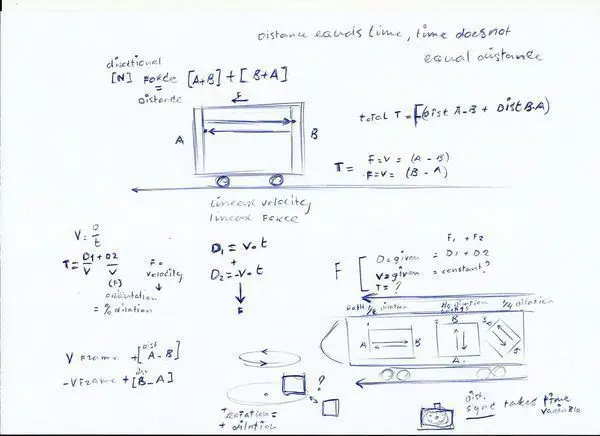 Distance equals time, time does not
equal distance
directional
[N] FORCE [A+B] + [B+A]
=
Distance
F
A
B
total T = F(Dist A-B + Dist B-A)
T = F=V = (A - B)
F=V = (B - A)
linear velocity
linear Force
V = D/t
T = D1/V + D2/V
(F)
F =
velocity
orientation
= % dilation
D1 = v·t
+
D2 = -v·t
F
F1 + F2
F [ D = given = D1 + D2
V = given = constant?
T = ?
1/2 dilation
No dilation
1/4 dilation
A
B
B
A
V Frame + [A-B]
dist
-V Frame + [B-A]
dist
?
rotation =
+ dilation
Dist.
sync takes time
variable